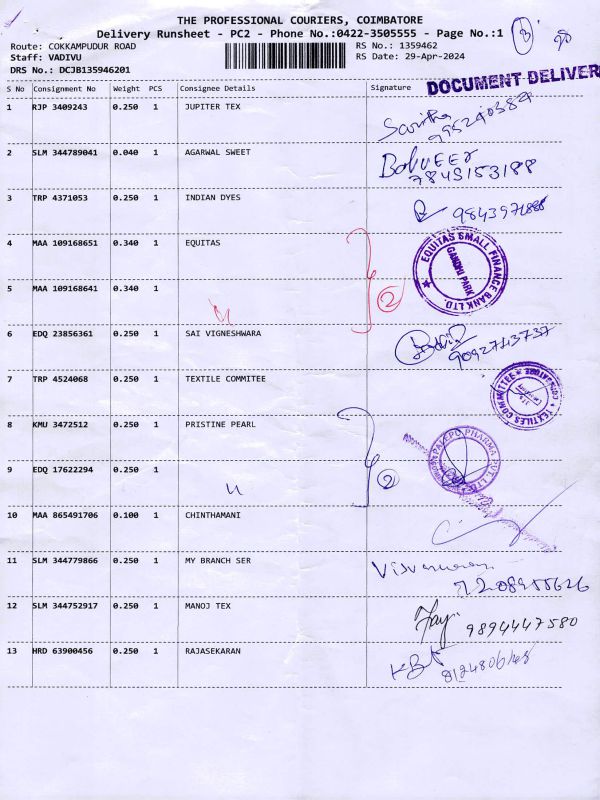 THE PROFESSIONAL COURIERS, COIMBATORE
Delivery Runsheet - PC2 - Phone No.:0422-3505555 - Page No.:1
Route: COKKAMPUDUR ROAD
RS No.: 1359462
Staff: VADIVU
RS Date: 29-Apr-2024
DRS No.: DCJB135946201
DOCUMENT DELIVER
S No Consignment No Weight PCS Consignee Details Signature
1 RJP 3409243 0.250 1 JUPITER TEX
Saritha
2 SLM 344789041 0.040 1 AGARWAL SWEET
7845153188
3 TRP 4371053 0.250 1 INDIAN DYES
4 MAA 109168651 0.340 1 EQUITAS
EQUITAS SMALL FINANCE BANK LTD.
GANDHI PARK
5 MAA 109168641 0.340 1
2
6 EDQ 23856361 0.250 1 SAI VIGNESHWARA
9092743737
7 TRP 4524068 0.250 1 TEXTILE COMMITEE
TEXTILES COMMITTEE COIMBATORE
8 KMU 3472512 0.250 1 PRISTINE PEARL
PHARMA PVT. LTD.
9 EDQ 17622294 0.250 1
2
10 MAA 865491706 0.100 1 CHINTHAMANI
11 SLM 344779866 0.250 1 MY BRANCH SER
12 SLM 344752917 0.250 1 MANOJ TEX
Jay
9894447580
13 HRD 63900456 0.250 1 RAJASEKARAN